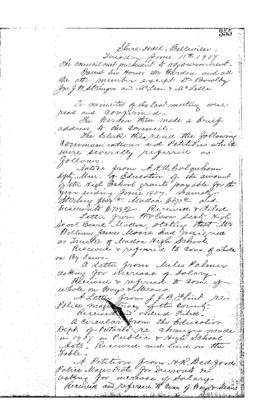 355
Shire Hall, Belleville,
Tuesday June 11th 1907
The council met pursuant to adjournment.
Present His Honor the Warden and all
the members except
The minutes of the last meeting were
read and confirmed.
The Warden then made a brief
address to the Council.
The Clerk then read the following
Communications and Petitions which
were severally referred as
follows.
Notice from A.H.U. Colquhoun
Dpty. Min. of Education of the amount
of the High School grants payable for the
year ending June 1907. Namely
Stirling Madoc and
Received &
Letter from Secty High
School Board Madoc, stating that Mr
William James Moore had resigned
as Trustee of Madoc High School.
Received & referred to Com. of whole
on By Laws.
A Letter from Miles Palmer
asking for increase of salary.
Received & referred to Com. of
whole on Ways & Means.
A Letter from J.J.B. Flint re
Police of the County.
Received and Filed.
A circular from the Education
Dept. of Ontario re changes made
in 1907 in Public & High School
Acts. Received and laid on the
Table.
A Petition from H.R. Bedford
Police Magistrate for Deseronto re
asking for increase of Salary.
Received and referred to Com. of Ways & Means